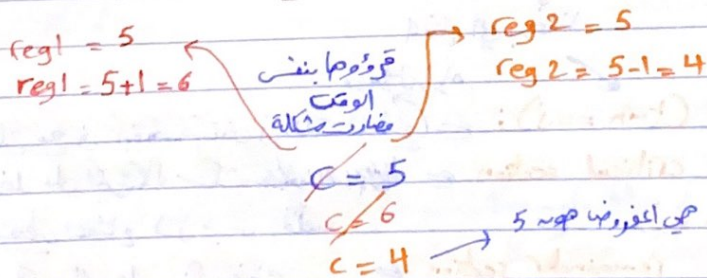 reg1 = 5
reg1 = 5+1 = 6
قرؤوها بنفس
الوقت
فصارت مشكلة
reg2 = 5
reg2 = 5-1 = 4
c = 5
c = 6
c = 4
هي المفروض هون 5